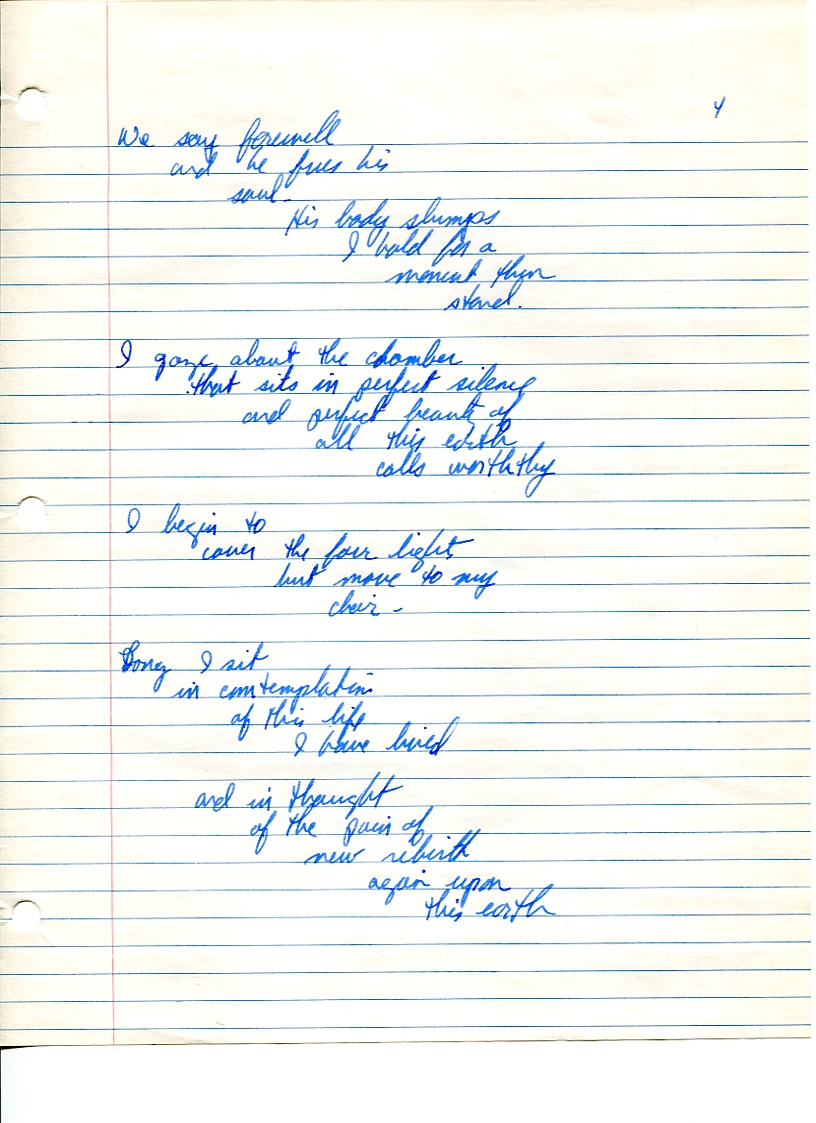 4
We say farewell
and he frees his
soul -
His body slumps
I hold for a
moment then
stand.
I gaze about the chamber
that sits in perfect silence
and perfect beauty of
all this earth
calls worththy
I begin to
cover the four lights
but move to my
chair -
Long I sit
in contemplation
of this life
I have lived
and in thought
of the pain of
new rebirth
again upon
this earth